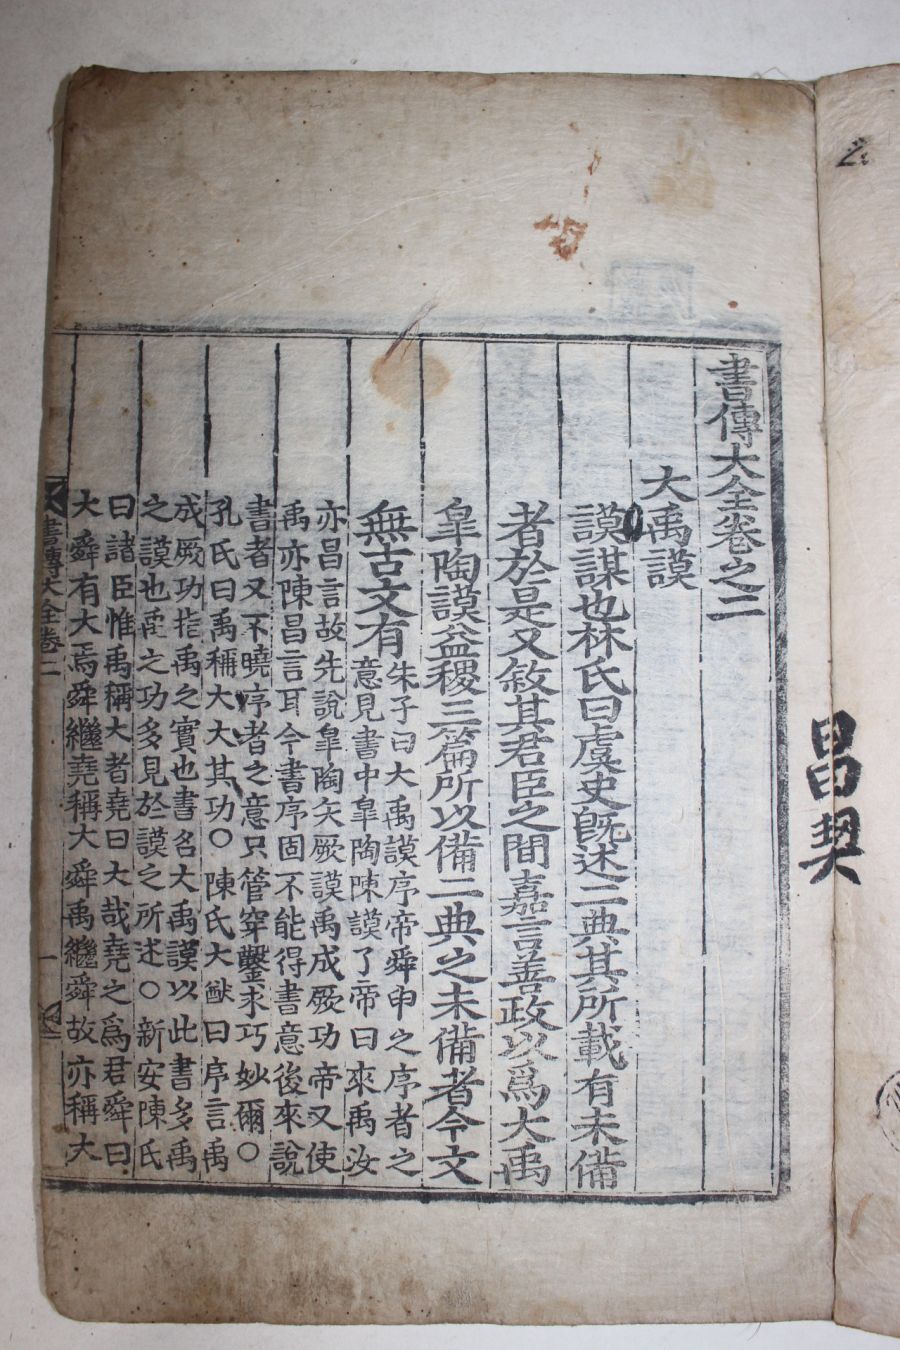 書傳大全卷之二
大禹謨
謨謀也林氏曰虞史旣述二典其所載有未備
者於是又敘其君臣之間嘉言善政以爲大禹
皐陶謨益稷三篇所以備二典之未備者今文
無古文有
朱子曰大禹謨序帝舜申之序者之
意見書中皐陶陳謨了帝曰來禹汝
亦昌言故先說皐陶矢厥謨禹成厥功帝又使
禹亦陳昌言耳今書序固不能得書意後來說
書者又不曉序者之意只管穿鑿求巧妙爾○
孔氏曰禹稱大大其功○陳氏大猷曰序言禹
成厥功指禹之實也書名大禹謨以此書多禹
之謨也禹之功多見於謨之所述○新安陳氏
曰諸臣惟禹稱大者堯曰大哉堯之爲君舜曰
大舜有大焉舜繼堯稱大舜禹繼舜故亦稱大
書傳大全卷二
一
昌契